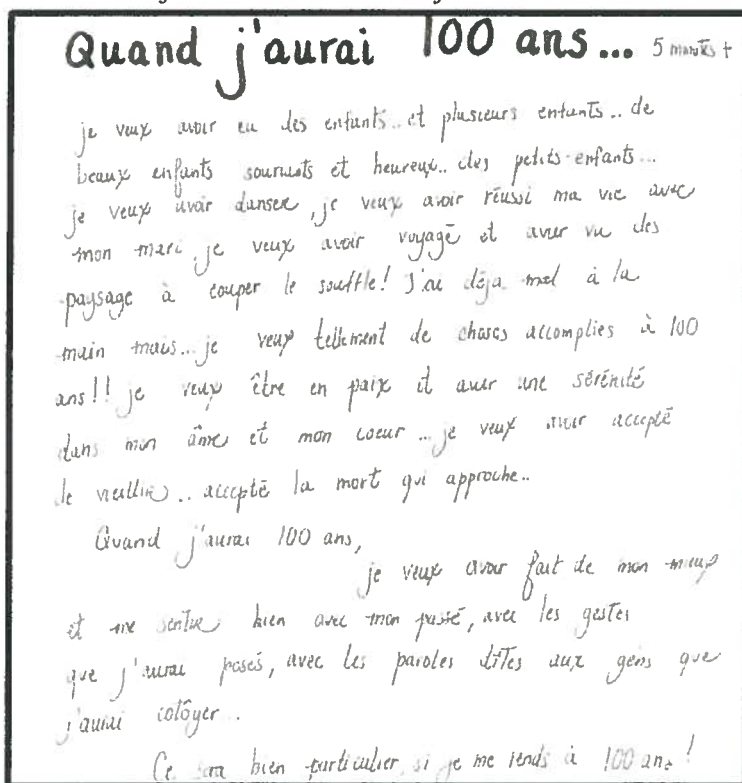 Quand j'aurai 100 ans... 5 minutes +
je veux avoir eu des enfants.. et plusieurs enfants.. de
beaux enfants souriants et heureux.. des petits-enfants...
je veux avoir danser, je veux avoir réussi ma vie avec
mon mari, je veux avoir voyagé et avoir vu des
paysage à couper le souffle! J'ai déja mal à la
main mais... je veux tellement de choses accomplies à 100
ans!! je veux être en paix et avoir une sérénité
dans mon âme et mon coeur... je veux avoir accepté
de vieillir.. accepté la mort qui approche..
Quand j'aurai 100 ans,
je veux avoir fait de mon mieux
et me sentir bien avec mon passé, avec les gestes
que j'aurai posés, avec les paroles dîtes aux gens que
j'aurai cotôyer..
Ce sera bien particulier si je me rends à 100 ans!